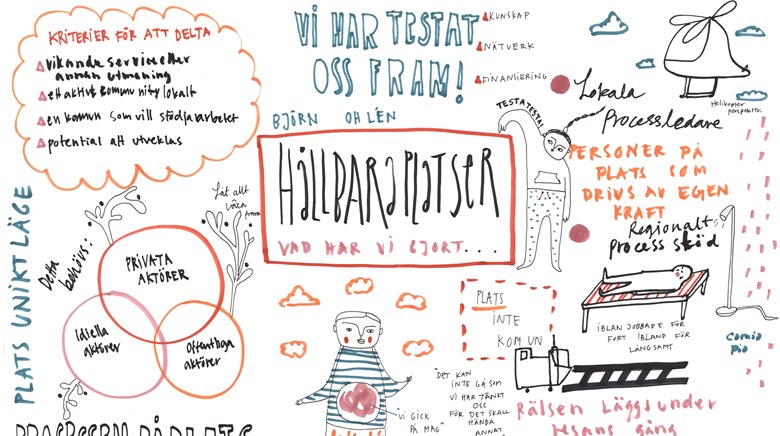 KRITERIER FÖR ATT DELTA
vikande service eller
annan utmaning
ett aktivt community lokalt
en kommun som vill stödja arbetet
potential att utvecklas
VI HAR TESTAT
OSS FRAM!
KUNSKAP
NÄTVERK
FINANSIERING
BJÖRN OHLÉN
HÅLLBARA PLATSER
VAD HAR VI GJORT....
TESTATESTA!
Lokala
Processledare
Helikopter
perspektiv
PERSONER PÅ
PLATS SOM
DRIVS AV EGEN
KRAFT
Regionalt
Process stöd
IBLAN JOBBADE FÖR
FORT IBLAND FÖR
LÅNGSAMT
PLATS UNIKT LÄGE
Detta
behövs:
låt allt
växa
fram
PRIVATA
AKTÖRER
Idiella
aktörer
Offentliga
aktörer
PLATS
INTE
KOMMUN
"VI GICK
PÅ MAG"
"DET KAN
INTE GÅ SOM
VI HAR TÄNKT
OSS
FÖR DET SKALL
HÄNDA
ANNAT
Rälsen Läggs under
resans gång